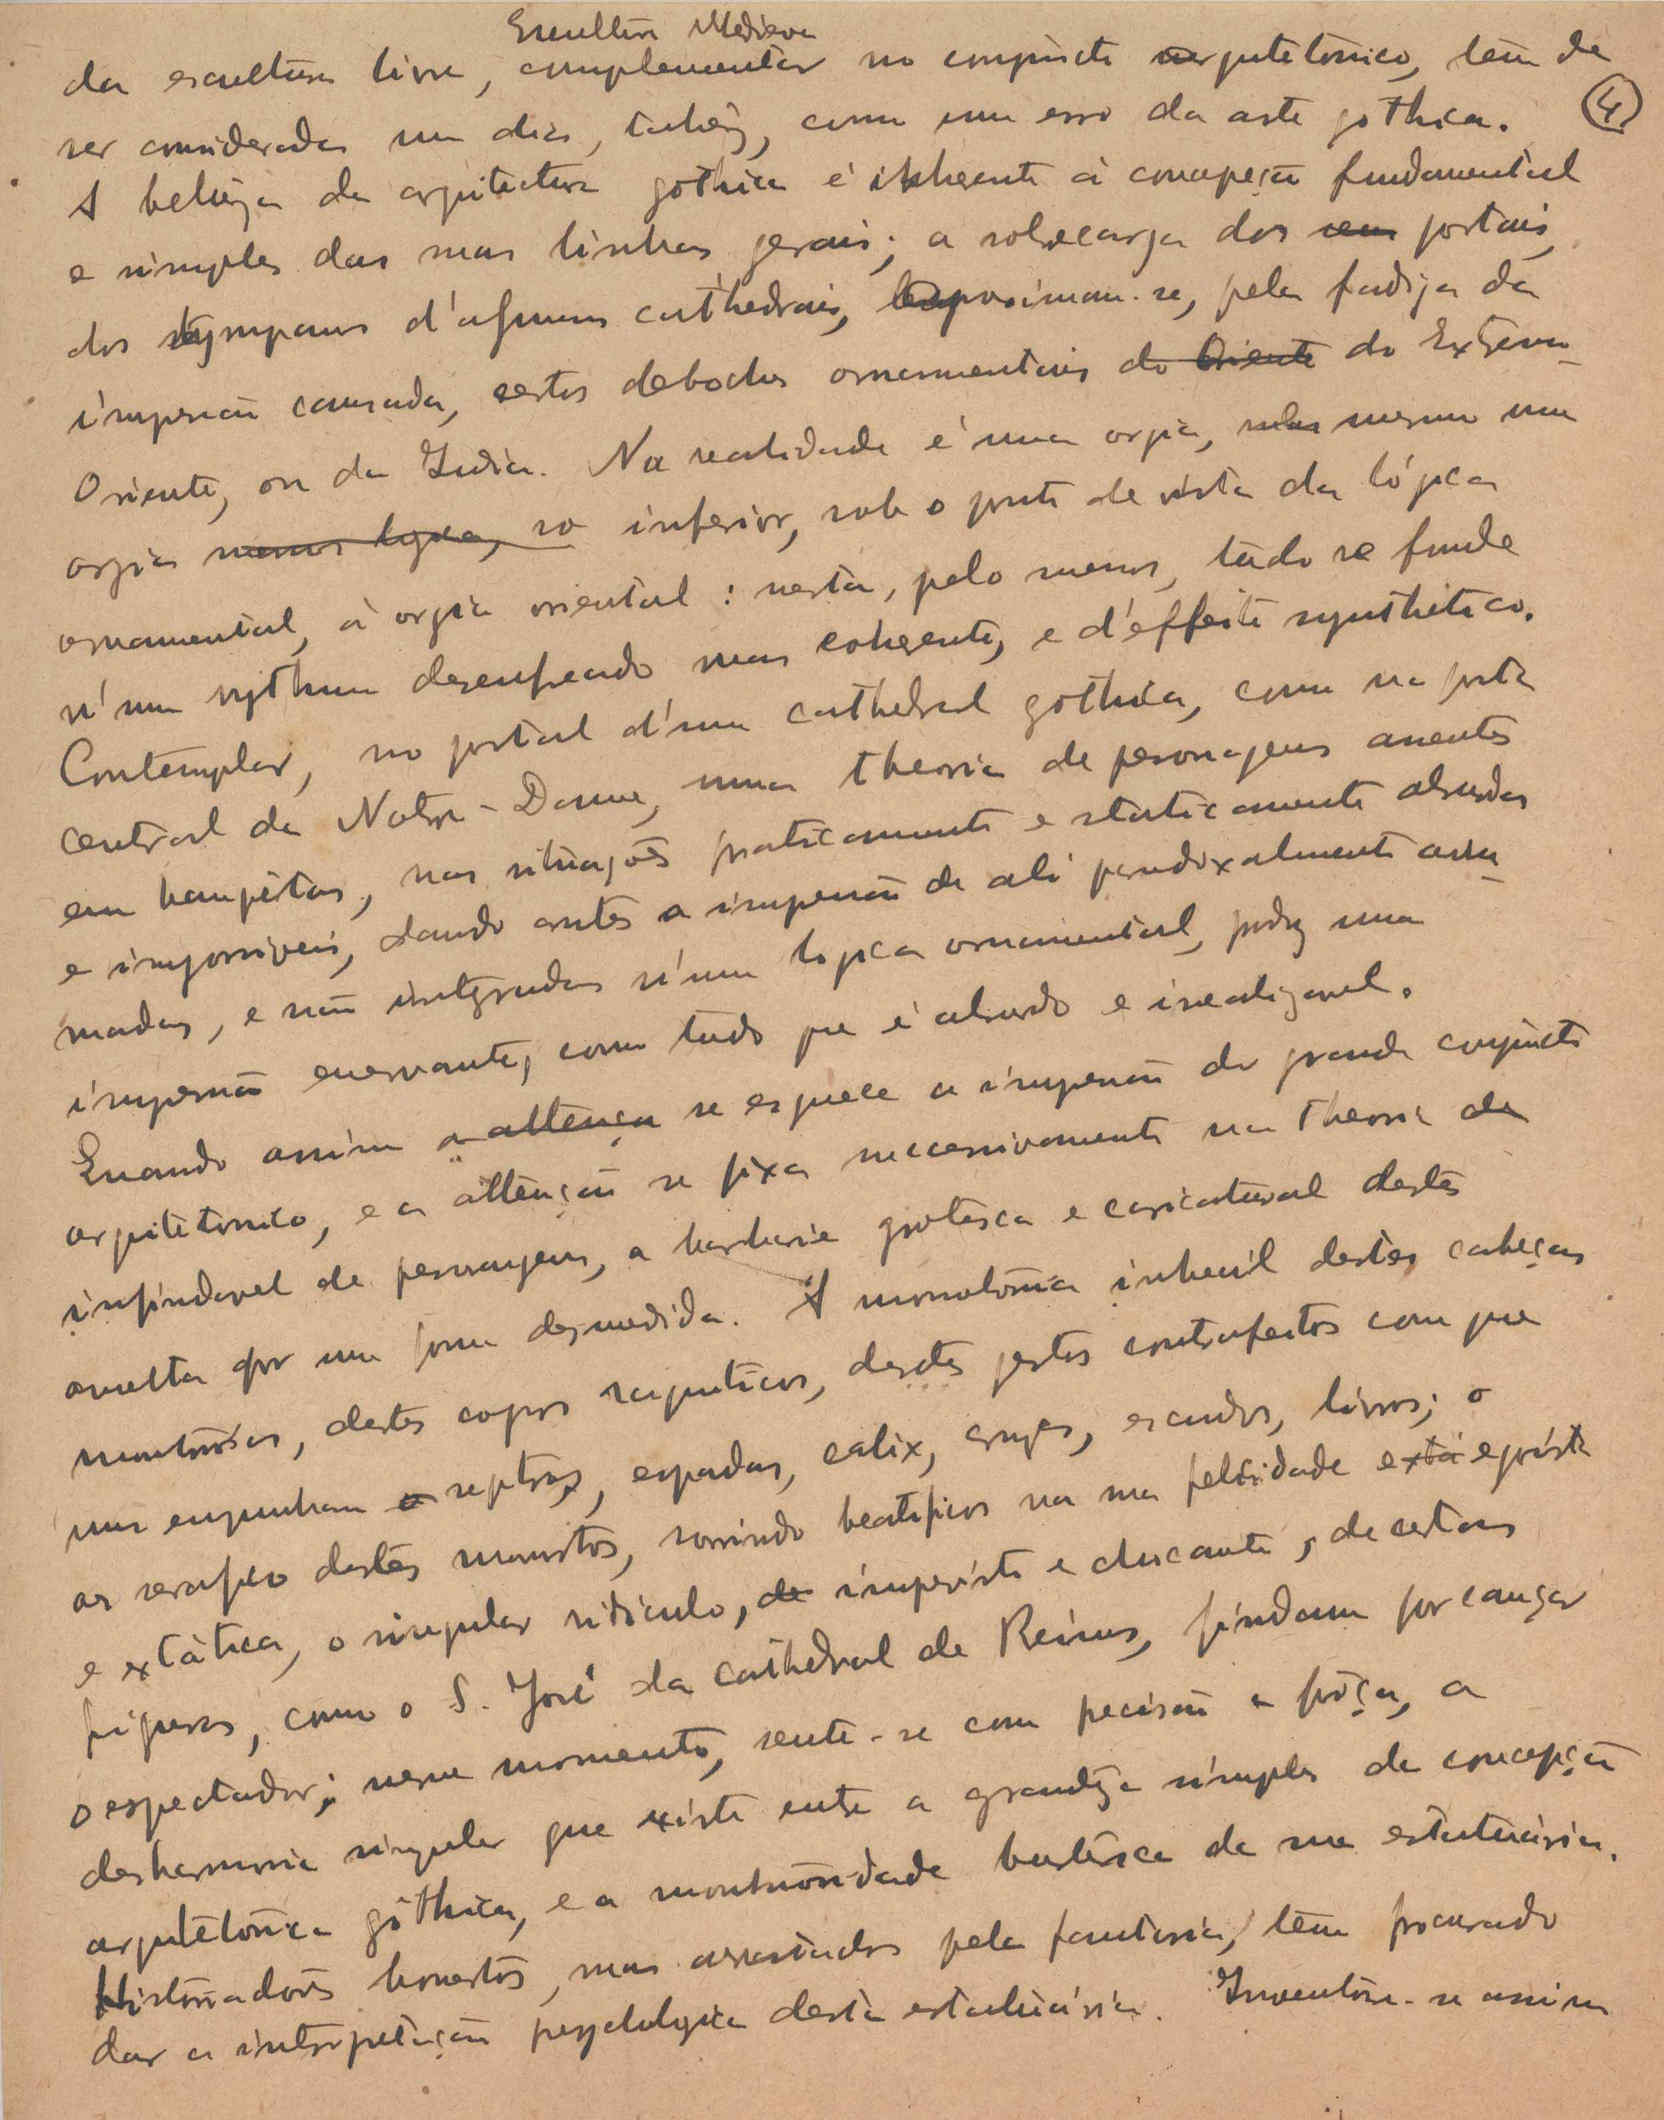 Escultura Medieva
da escultura livre, complementar no conjuncto arquitetonico, tem de
4
ser considerada um dia, talvez, como um erro da arte gothica.
A beleza da arquitectura gothica é inherente á concepção fundamental
e simples das suas linhas gerais; a sobrecarga dos seus portais,
dos tympanos d'algumas cathedrais, aproximam-se, pela fadiga da
impressão causada, certos deboches ornamentais do Oriente do Extremo
Oriente, ou da India. Na realidade é uma orgia, mesmo uma
orgia menos logica, so inferior, sob o ponto de vista da lógica
ornamental, á orgia oriental: nesta, pelo menos, tudo se funde
n'um rythmo desenfreado mas coherente, e d'effeito synthético.
Contemplar, no portal d'uma cathedral gothica, como na porta
central da Notre-Dame, uma theoria de personagens assentes
em banquetas, nas situações praticamente e staticamente absurdas
e impossiveis, dando antes a impressão de ali paradoxalmente arru-
madas, e não integradas n'uma logica ornamental, produz uma
impressão enervante, como tudo que é absurdo e irrealizavel.
Quando assim a attença se esquece a impressão do grande conjuncto
arquitetonico, e a attenção se fixa successivamente na theoria de
infindavel de personagens, a barbarie grotesca e caricatural destes
avulta por uma forma desmedida. A monotonia imbecil destas cabeças
monstruosas, destes corpos raquiticos, destes gestos contrafeitos com que
uns empunham a sceptros, espadas, calix, cruzes, escudos, livros; o
ar serafico destes monstros, sorrindo beatificos na sua felicidade exta egoista
e extática, o singular ridiculo, de imprevisto e chocante, de certas
figuras, como o S. José da cathedral de Reims, findam por cançar
o espectador; nesse momento, sente-se com precisão e força, a
desharmonia singular que existe entre a grandeza simples da concepção
arquitetonica gothica, e a monstruosidade burlesca da sua estatuária.
Historiadores honestos, mas arrastados pela fantasia, tem procurado
dar a interpretação psychologica desta estatuária. Inventou-se assim